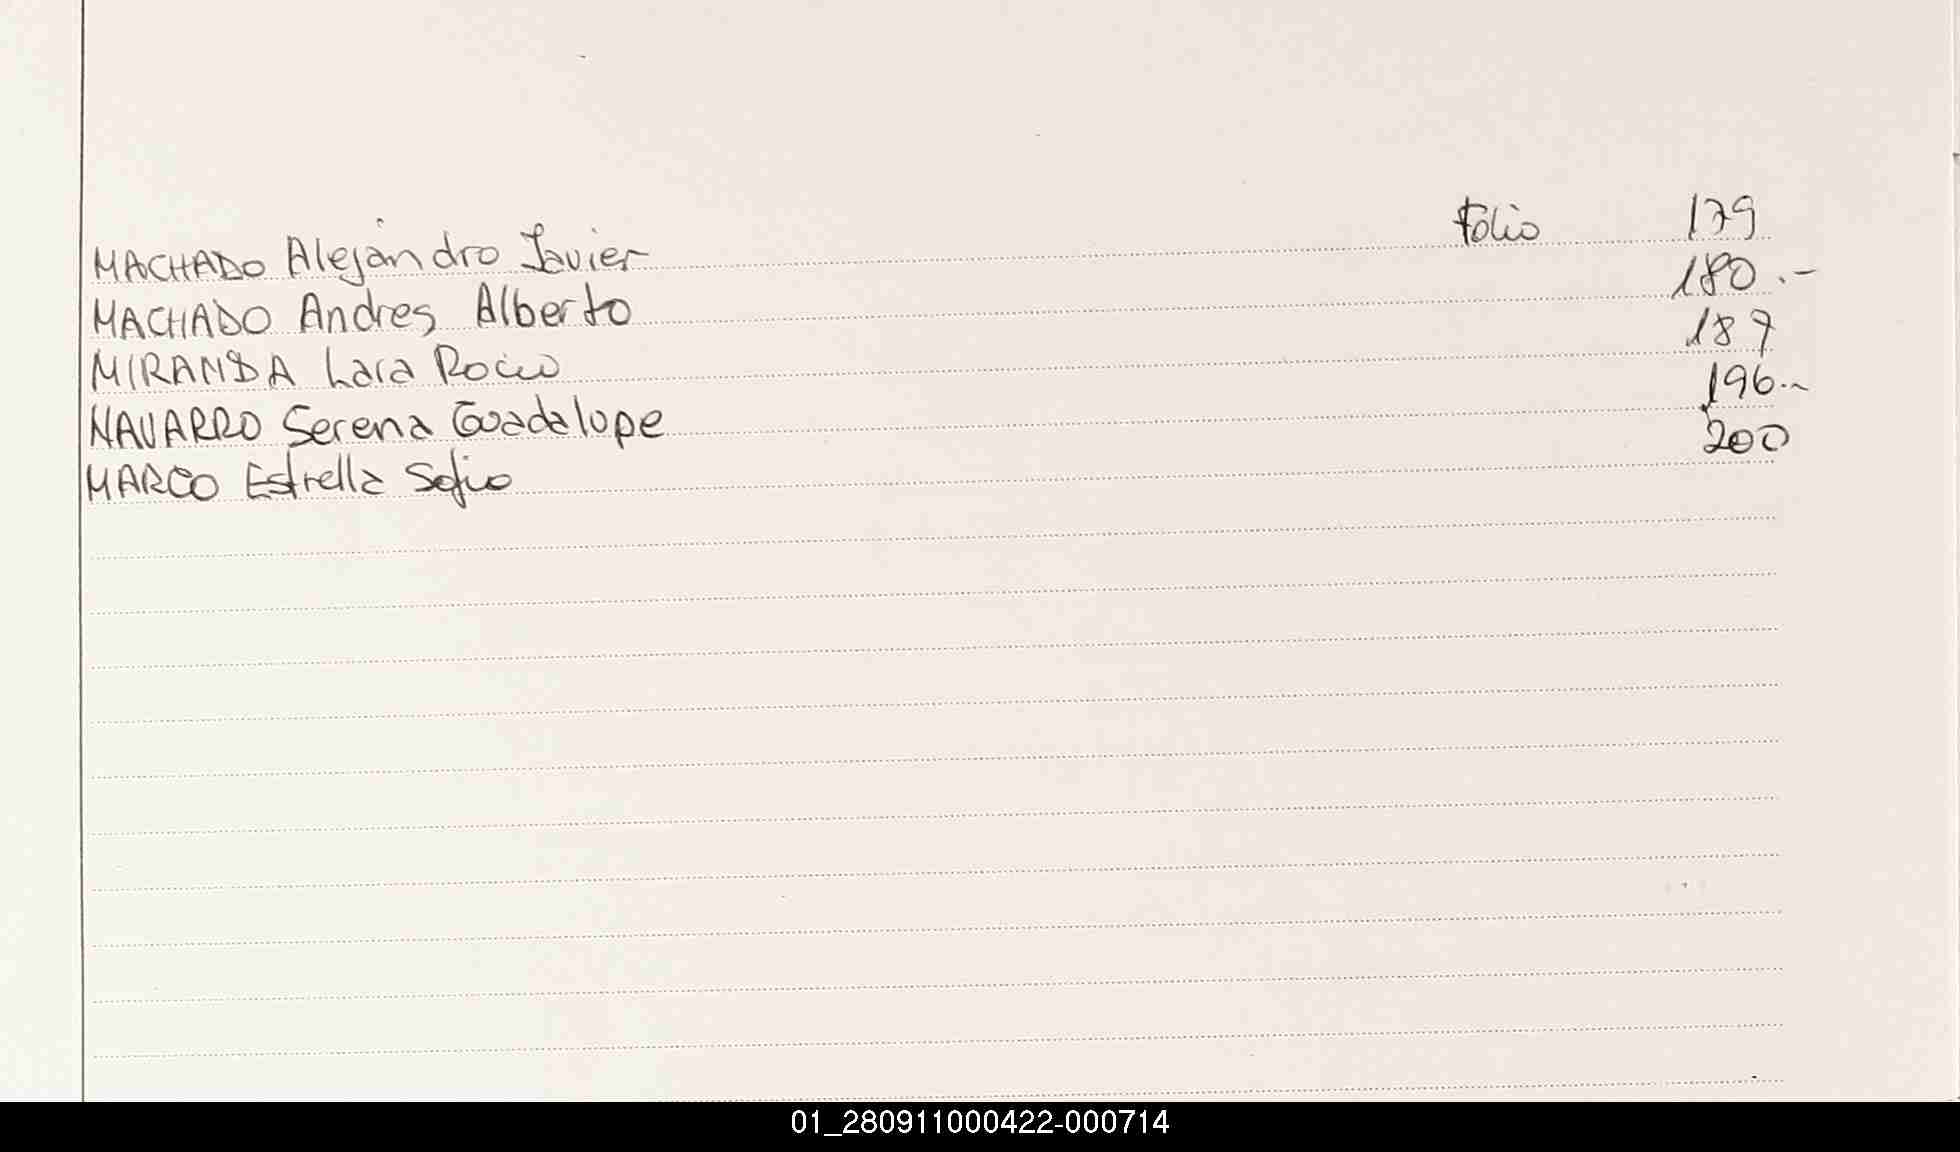 MACHADO Alejandro Javier Folio 179
MACHADO Andres Alberto 180.-
MIRANDA Lara Rocio 187
NAVARRO Serena Guadalupe 196.-
MARCO Estrella Sofia 200
01_280911000422-000714